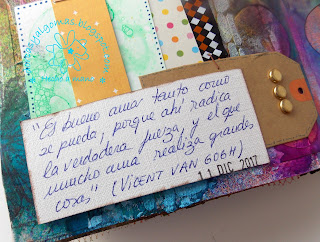 "Es bueno amar tanto como
se pueda, porque ahí radica
la verdadera fuerza, y el que
mucho ama realiza grandes
cosas" (VICENT VAN GOGH)
11 DIC 2017